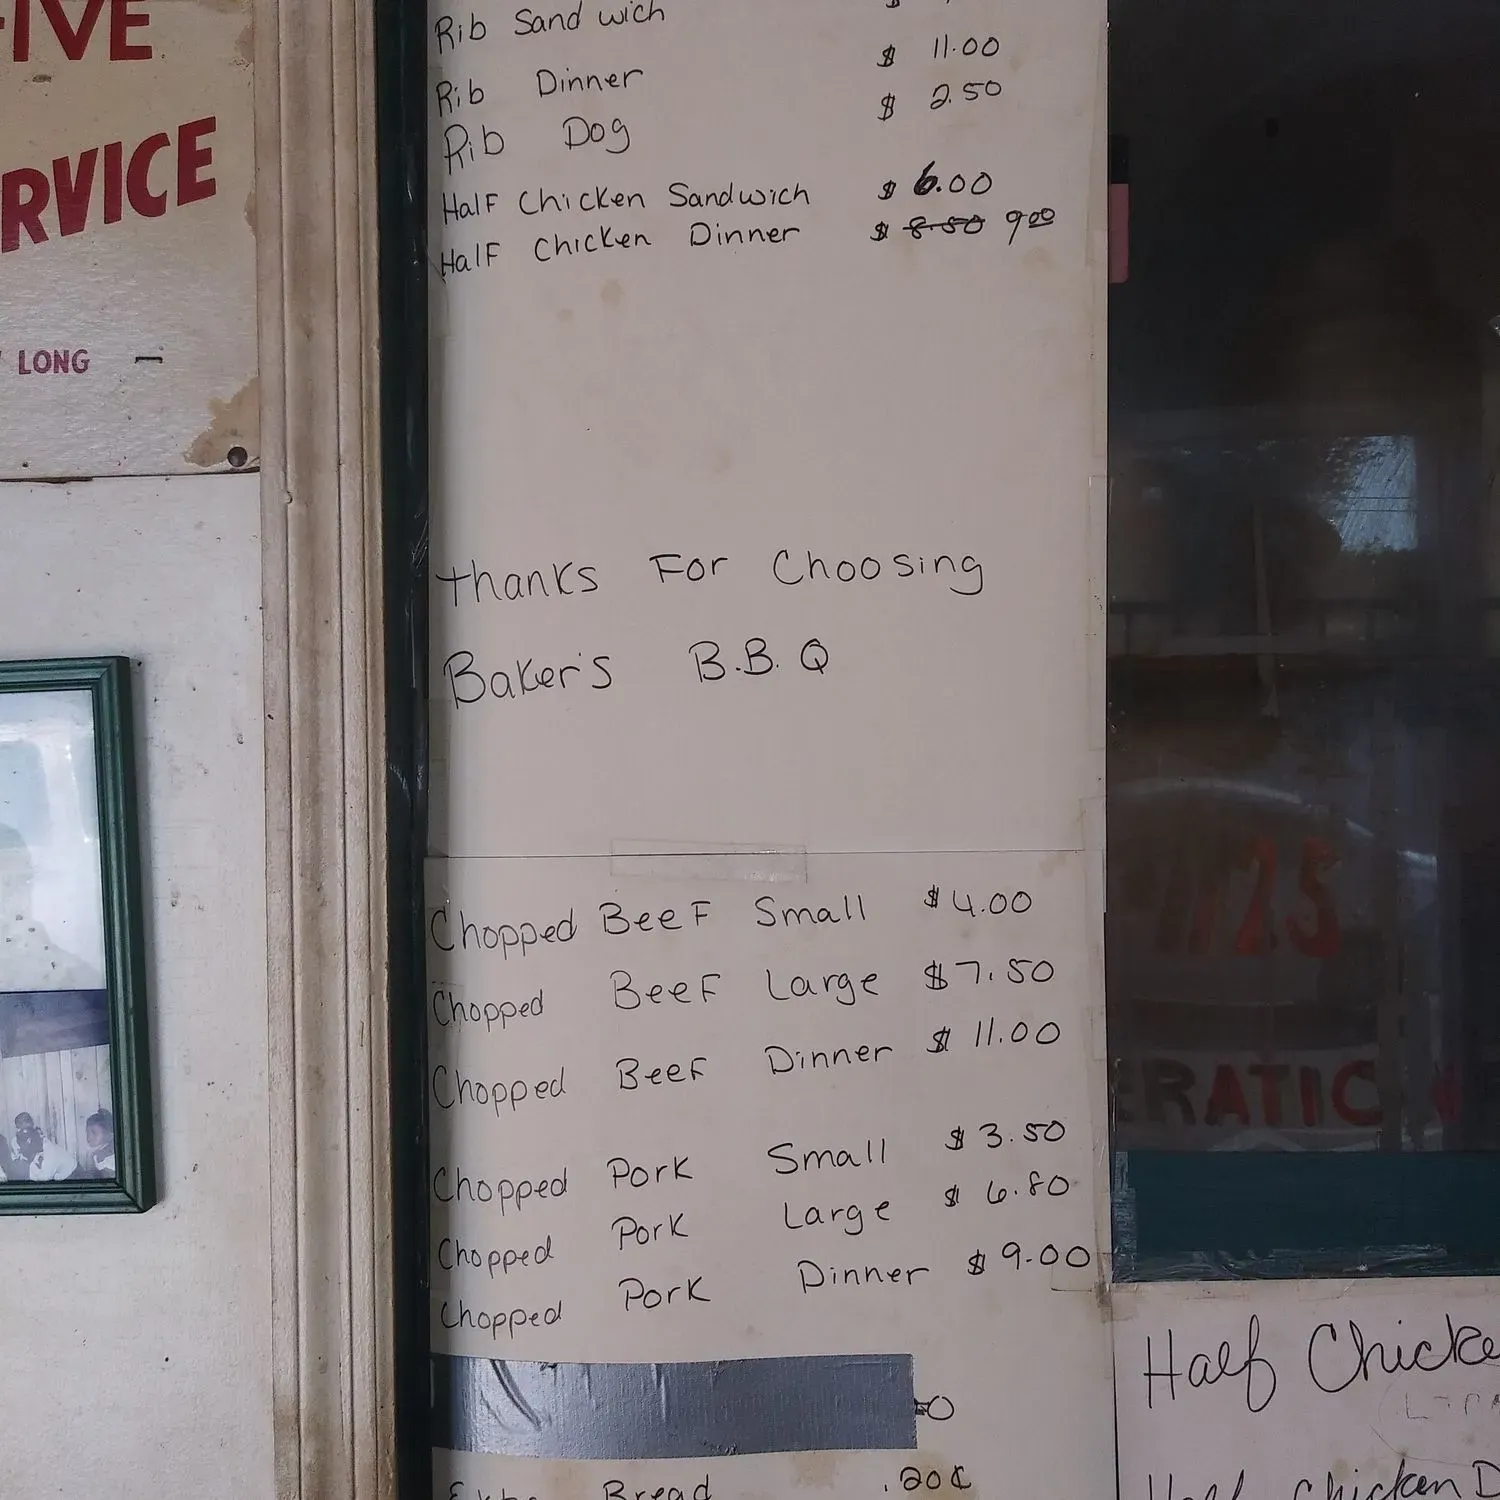 Rib Sandwich $
Rib Dinner $ 11.00
Rib Dog $ 2.50
Half Chicken Sandwich $ 6.00
Half Chicken Dinner $ 8.50 9.00
thanks For Choosing
Baker's B.B.Q
Chopped BeeF Small $ 4.00
Chopped BeeF Large $ 7.50
Chopped BeeF Dinner $ 11.00
Chopped Pork Small $ 3.50
Chopped Pork Large $ 6.80
Chopped Pork Dinner $ 9.00
Bread .20¢
IVE
RVICE
LONG
25
ERATIO
Half Chicke
Half Chicken D